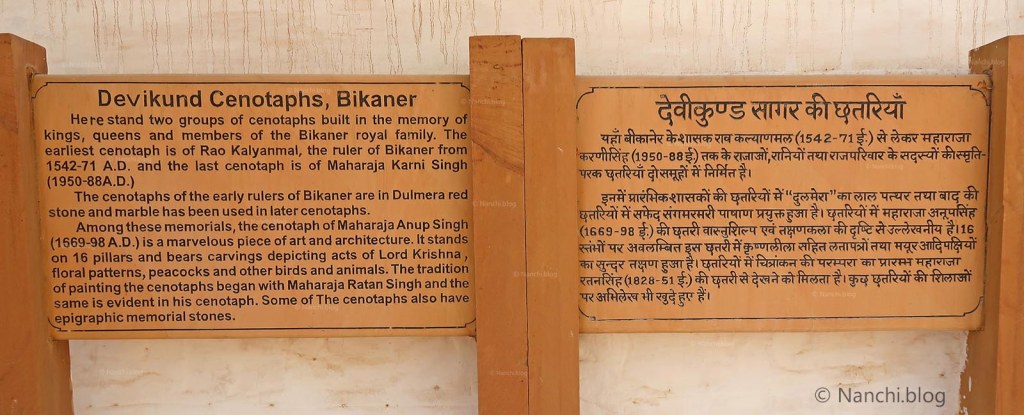 Devikund Cenotaphs, Bikaner
Here stand two groups of cenotaphs built in the memory of
kings, queens and members of the Bikaner royal family. The
earliest cenotaph is of Rao Kalyanmal, the ruler of Bikaner from
1542-71 A.D. and the last cenotaph is of Maharaja Karni Singh
(1950-88A.D.)
The cenotaphs of the early rulers of Bikaner are in Dulmera red
stone and marble has been used in later cenotaphs.
Among these memorials, the cenotaph of Maharaja Anup Singh
(1669-98 A.D.) is a marvelous piece of art and architecture. It stands
on 16 pillars and bears carvings depicting acts of Lord Krishna,
floral patterns, peacocks and other birds and animals. The tradition
of painting the cenotaphs began with Maharaja Ratan Singh and the
same is evident in his cenotaph. Some of The cenotaphs also have
epigraphic memorial stones.
देवीकुण्ड सागर की छतरियाँ
यहाँ बीकानेर के शासक राव कल्याणमल (1542-71 ई.) से लेकर महाराजा
करणीसिंह (1950-88 ई) तक के राजाओं, रानियों तथा राजपरिवार के सदस्यों की स्मृति-
परक छतरियाँ दो समूहों में निर्मित है।
इनमें प्रारंभिक शासकों की छतरियों में "दुलमेरा" का लाल पत्थर तथा बाद की
छतरियों में सफेद संगमरमरी पाषाण प्रयुक्त हुआ है। छतरियों में महाराजा अनूपसिंह
(1669-98 ई.) की छतरी वास्तुशिल्प एवं तक्षणकला की दृष्टि से उल्लेखनीय है। 16
स्तंभों पर अवलम्बित इस छतरी में कृष्णलीला सहित लता पत्रों तथा मयूर आदि पक्षियों
का सुन्दर तक्षण हुआ है। छतरियों में चित्रांकन की परम्परा का प्रारम्भ महाराजा
रतनसिंह (1828-51 ई.) की छतरी से देखने को मिलता है। कुछ छतरियों की शिलाओं
पर अभिलेख भी खुदे हुए हैं।
© Nanchi.blog